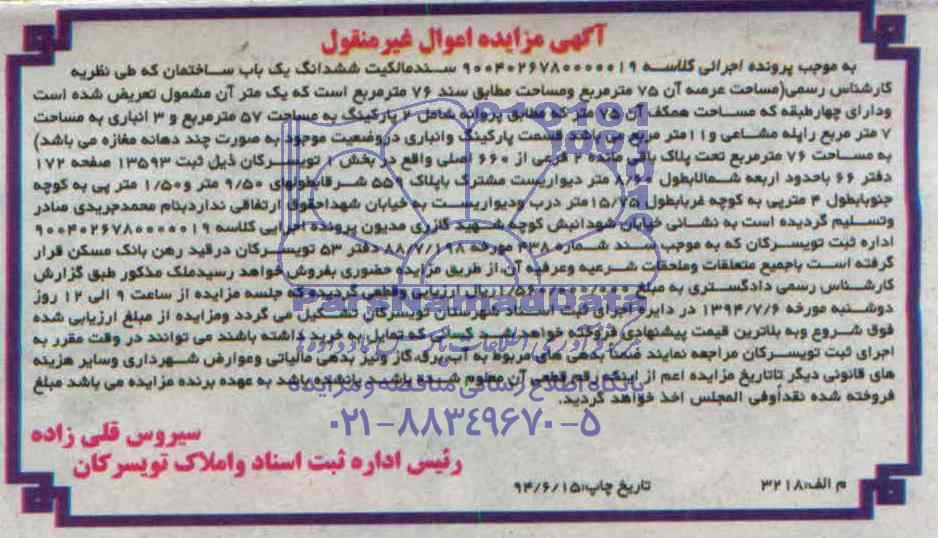 آگهی مزایده اموال غیرمنقول
به موجب پرونده اجرائی کلاسه ۹۰۰۴۰۲۶۷۸۰۰۰۰۰۱۹ سندمالکیت ششدانگ یک باب ساختمان که طی نظریه
کارشناس رسمی(مساحت عرصه آن ۷۵ مترمربع ومساحت مطابق سند ۷۶ مترمربع است که یک متر آن مشمول تعریض شده است
ودارای چهارطبقه که مساحت همکف آن ۷۵ متر که مطابق پروانه شامل ۲ پارکینگ به مساحت ۵۷ مترمربع و ۳ انباری به مساحت
۷ متر مربع راپله مشاعی و۱۱متر مربع می باشد قسمت پارکینگ وانباری دروضعیت موجود به صورت چند دهانه مغازه می باشد)
به مساحت ۷۶ مترمربع تحت پلاک باقی مانده ۲ فرعی از ۶۶۰ اصلی واقع در بخش ۱ تویسرکان ذیل ثبت ۱۳۵۹۳ صفحه ۱۷۲
دفتر ۶۶ باحدود اربعه شمالابطول متر دیواریست مشترک باپلاک شرقابطولهای ۹/۵۰ متر و۱/۵۰ متر پی به کوچه
جنوبابطول ۴ مترپی به کوچه غربابطول ۱۵/۷۵متر درب ودیواریست به خیابان شهداحقوق ارتفاقی نداردبنام محمدجریدی صادر
وتسلیم گردیده است به نشانی خیابان شهدانبش کوچه شهید گازری مدیون پرونده اجرایی کلاسه ۹۰۰۴۰۲۶۷۸۰۰۰۰۰۱۹
اداره ثبت تویسرکان که به موجب سند شماره مورخه دفتر ۵۳ تویسرکان درقید رهن بانک مسکن قرار
گرفته است باجمیع متعلقات وملحقات شرعیه وعرفیه آن از طریق مزایده حضوری بفروش خواهد رسیدملک مذکور طبق گزارش
کارشناس رسمی دادگستری به مبلغ ریال ارزیابی وقطعی گردیده که جلسه مزایده از ساعت ۹ الی ۱۲ روز
دوشنبه مورخه ۱۳۹۴/۷/۶ در دایره اجرای ثبت اسناد شهرستان تویسرکان تشکیل می گردد ومزایده از مبلغ ارزیابی شده
فوق شروع وبه بالاترین قیمت پیشنهادی فروخته خواهد شد کسانی که تمایل به خرید داشته باشند می توانند در وقت مقرر به
اجرای ثبت تویسرکان مراجعه نمایند ضمنا بدهی های مربوط به آب،برق،گاز ونیز بدهی مالیاتی وعوارض شهرداری وسایر هزینه
های قانونی دیگر تاتاریخ مزایده اعم از اینکه رقم قطعی آن معلوم شده باشد یا نشده باشد به عهده برنده مزایده می باشد مبلغ
فروخته شده نقداًوفی المجلس اخذ خواهد گردید.
سیروس قلی زاده
رئیس اداره ثبت اسناد واملاک تویسرکان
م الف:۳۲۱۸ تاریخ چاپ:۹۴/۶/۱۵
ParsNamadData
پایگاه اطلاع رسانی مناقصه و مزایده
۰۲۱-۸۸۳۴۹۶۷۰-۵